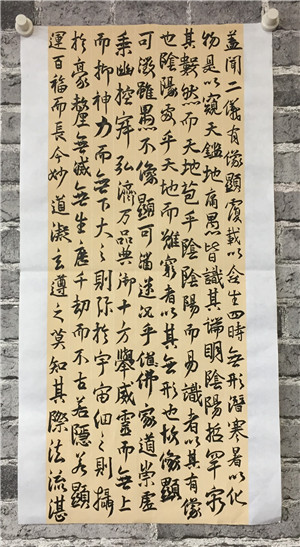 蓋聞二儀有像顯覆載以含生四時無形潛寒暑以化
物是以窺天鑑地庸愚皆識其端明陰陽哲罕窮
其數然而天地苞乎陰陰陽而易識者以其有像
也陰陽處乎天地而難窮者以其無形也故像顯
可徵雖愚不像顯可猶迷況乎佛家道崇虛
乘幽控寂弘濟万品典御十方舉威靈而無上
而抑神力而無下大之則弥於宇宙細之則攝
於毫釐無滅無生歷千劫而不古若隱若顯
運百福而長今妙道凝玄遵之莫知其際法流湛